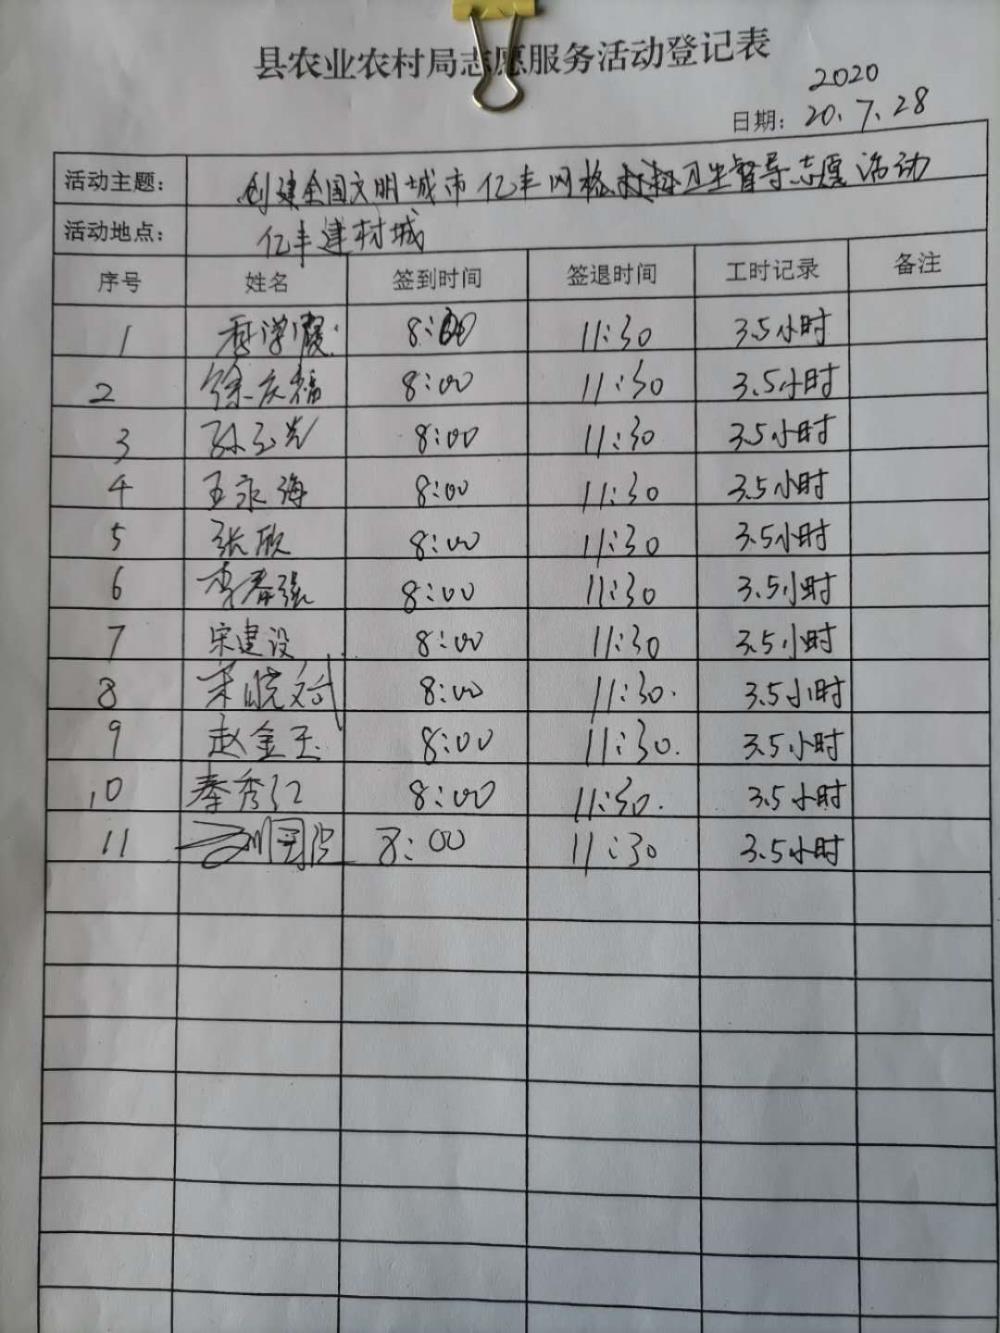 县农业农村局志愿服务活动登记表
2020
日期: 20.7.28
活动主题: 创建全国文明城市亿丰网格 卫生督导志愿活动
活动地点: 亿丰建材城
序号 姓名 签到时间 签退时间 工时记录 备注
1 8:00 11:30 3.5小时
2 徐庆福 8:00 11:30 3.5小时
3 孙玉光 8:00 11:30 3.5小时
4 王永海 8:00 11:30 3.5小时
5 张欣 8:00 11:30 3.5小时
6 李春强 8:00 11:30 3.5小时
7 宋建设 8:00 11:30 3.5小时
8 8:00 11:30. 3.5小时
9 赵金玉 8:00 11:30. 3.5小时
10 秦秀江 8:00 11:30. 3.5小时
11 8:00 11:30 3.5小时